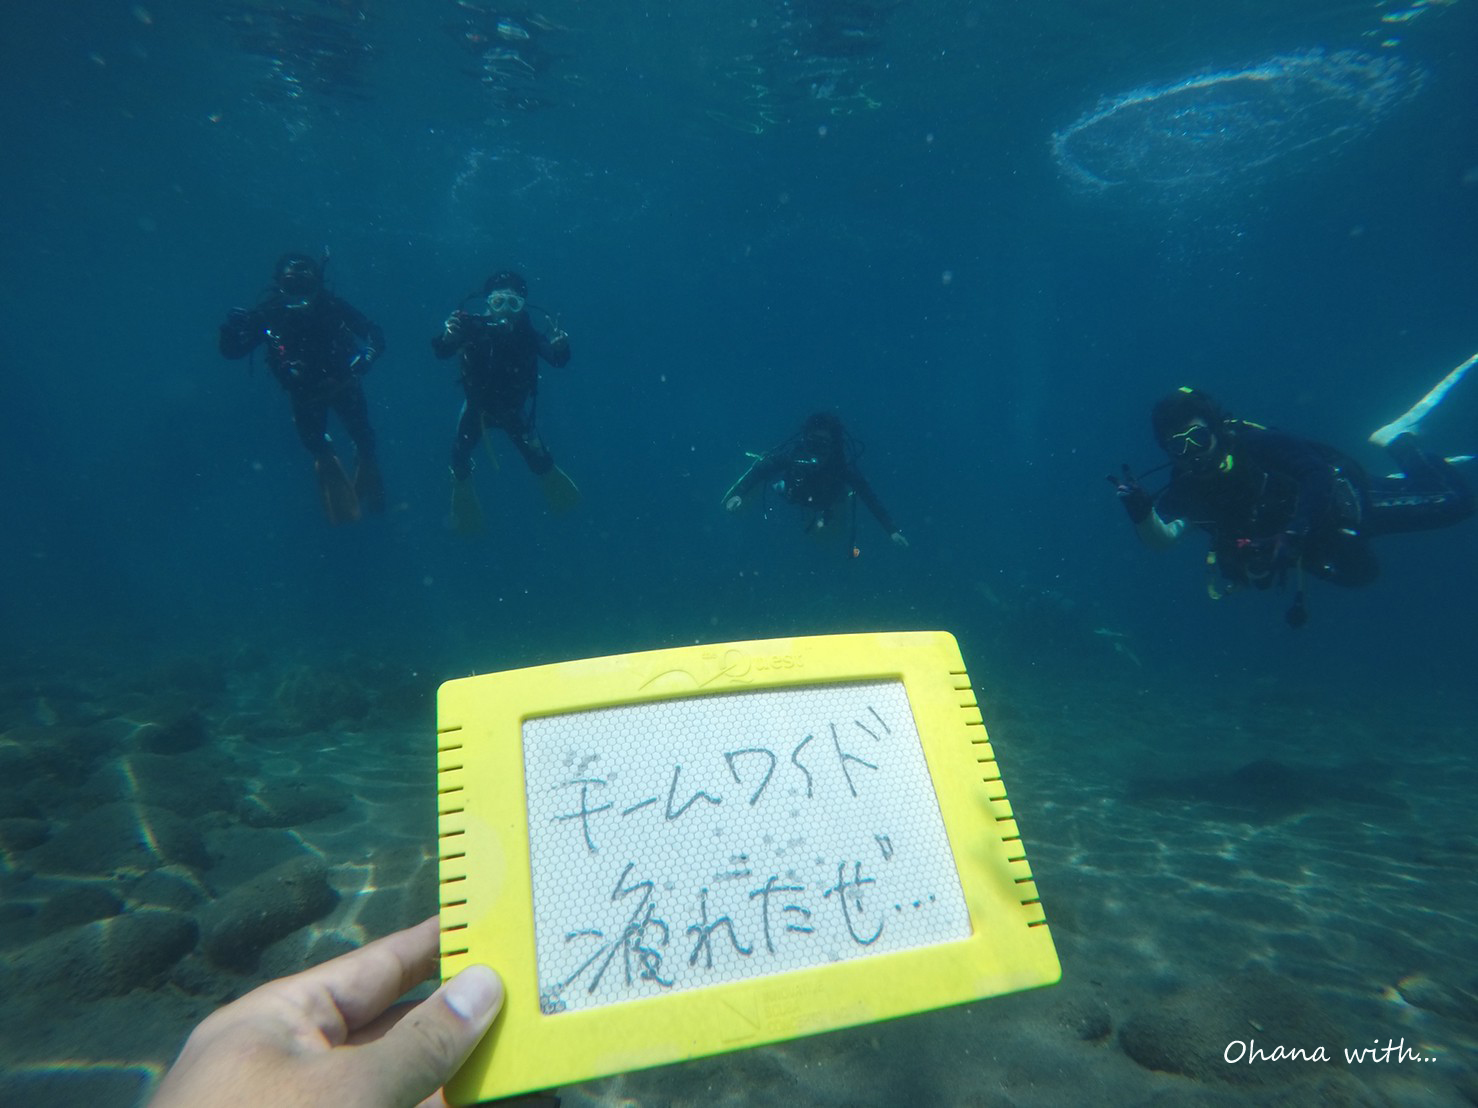 Quest
チームワイド
疲れたぜ…
Ohana with...